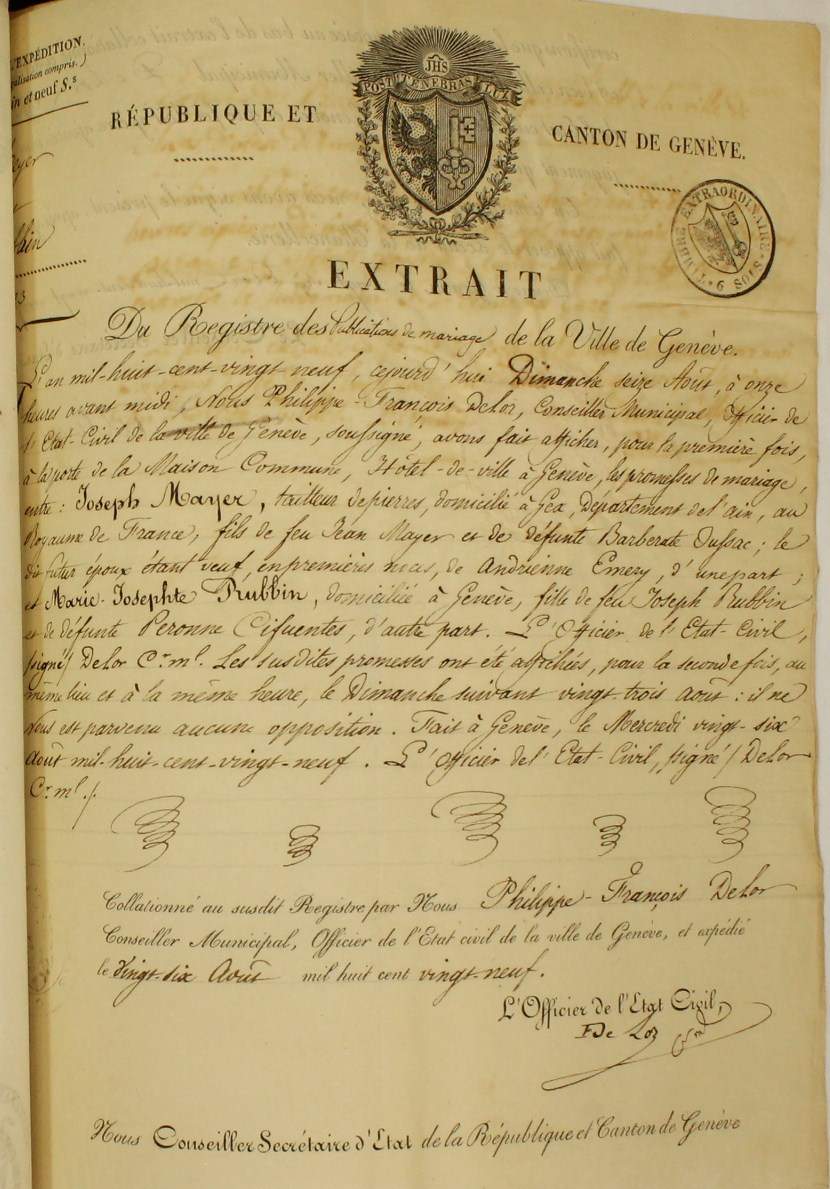 L'EXPÉDITION.
(légalisation compris.)
et neuf S.s
JHS
POST TENEBRAS LUX
RÉPUBLIQUE ET
CANTON DE GENÈVE.
TIMBRE EXTRAORDINAIRE
6 SOLS
EXTRAIT
Du Registre des Publications de mariage de la Ville de Genève.
L'an mil-huit-cent-vingt neuf, cejourd'hui Dimanche seize Août, à onze
heures avant midi, Nous Philippe-François Delor, Conseiller Municipal, Officier de
l'Etat-Civil de la ville de Genève, soussigné, avons fait afficher, pour la première fois,
à la porte de la Maison Commune, Hôtel-de-ville à Genève, les promesses de mariage,
entre: Joseph Mayer, tailleur de pierres, domicilié à Gex, Département de l'ain, au
Royaume de France, fils de feu Jean Mayer et de défunte Barberate Dussac; le
dit futur époux étant veuf, en premières noces, de Andrienne Emery, d'une part;
et Marie-Josephte Rubbin, domiciliée à Genève, fille de feu Joseph Rubbin
et de défunte Peronne Cifuentes, d'autre part. L'Officier de l'Etat-Civil,
signé/ Delor C.r m.l. Les susdites promesses ont été affichées, pour la seconde fois, au
même lieu et à la même heure, le Dimanche suivant vingt trois Août: il ne
Nous est parvenu aucune opposition. Fait à Genève, le Mercredi vingt-six
Août mil-huit-cent-vingt-neuf. L'Officier de l'Etat-Civil, signé/ Delor
C.r m.l./.
Collationné au susdit Registre par Nous Philippe-François Delor
Conseiller Municipal, Officier de l'Etat civil de la ville de Genève, et expédié
le Vingt-six Août mil huit cent vingt-neuf.
L'Officier de l'Etat Civil,
F De Lor
Nous Conseiller Secrétaire d'Etat de la République et Canton de Genève